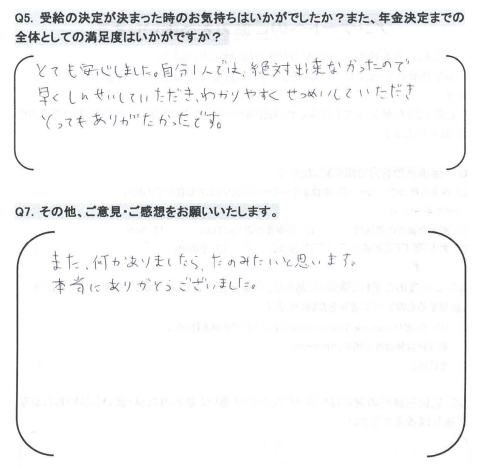 Q5. 受給の決定が決まった時のお気持ちはいかがでしたか？また、年金決定までの
全体としての満足度はいかがですか？
とても安心しました。自分1人では、絶対出来なかったので
早くしんせいしていただき、わかりやすくせつめいしていただき
とってもありがたかったです。
Q7. その他、ご意見・ご感想をお願いいたします。
また、何かありましたら、たのみたいと思います。
本当にありがとうございました。